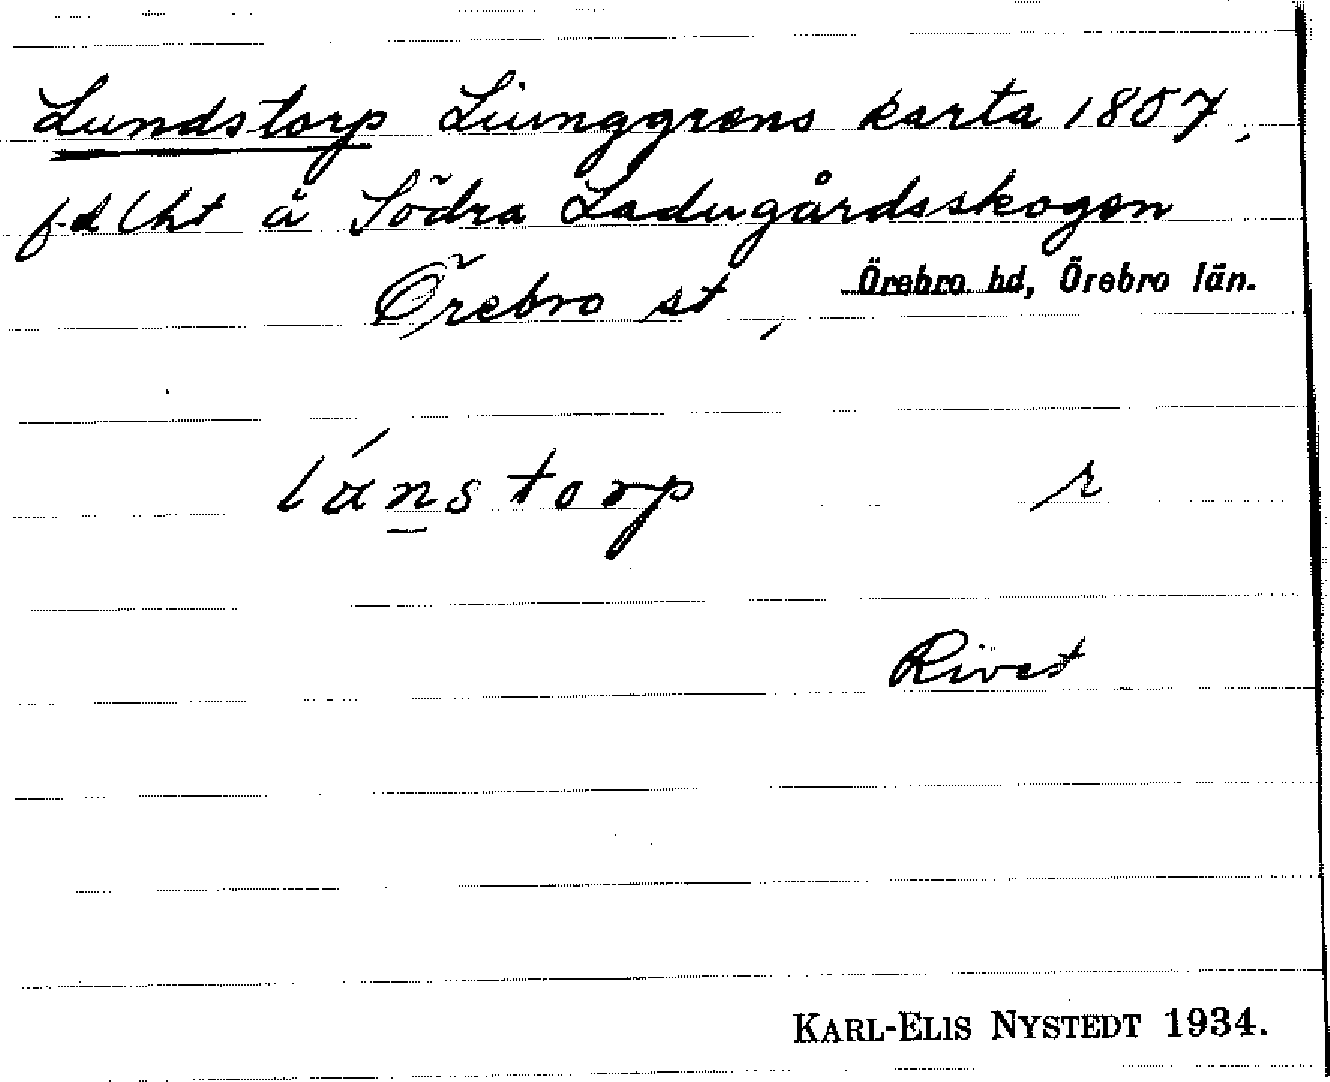 Lundstorp Liunggrens karta 1857,
f.d lht å Södra Ladugårdsskogen
Örebro st, Örebro hd, Örebro län.
lánstorp r
Rivet
KARL-ELIS NYSTEDT 1934.